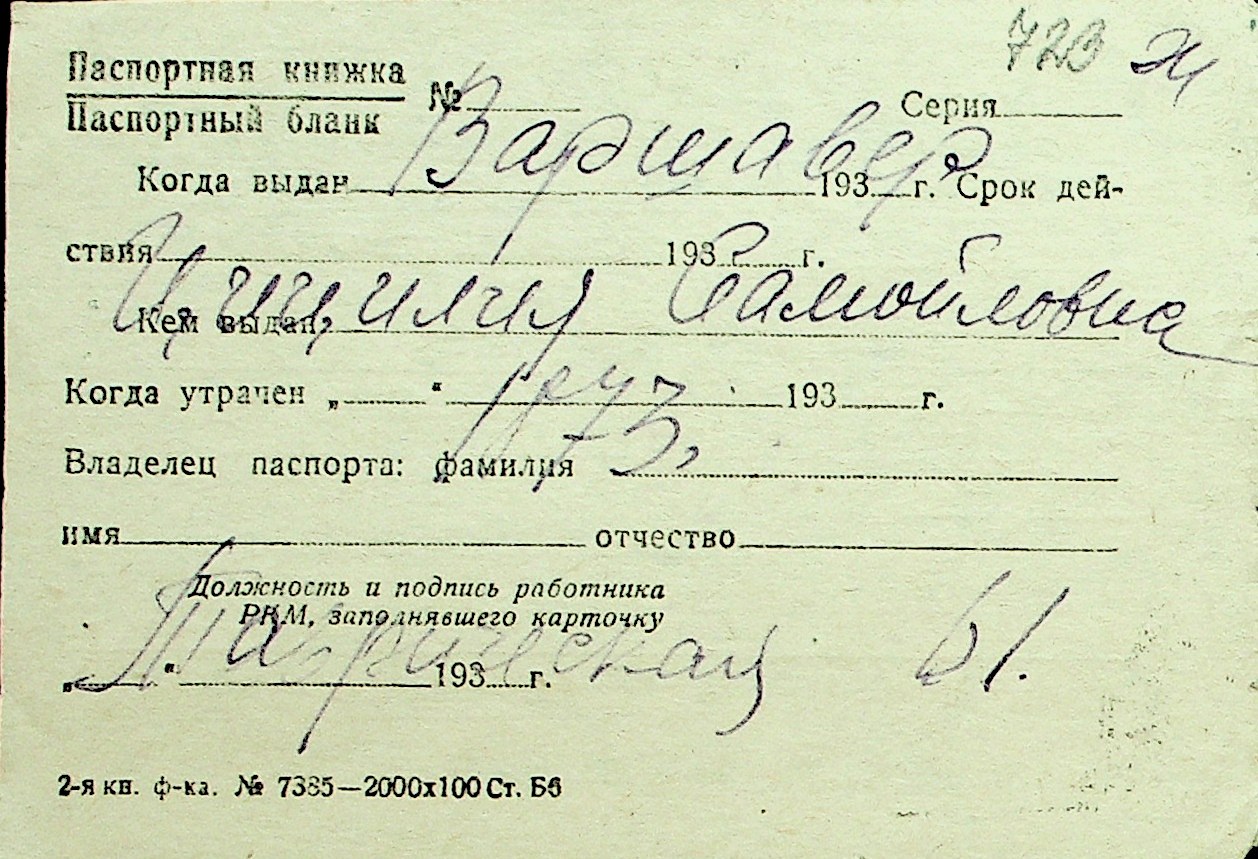 723 Ж
Паспортная книжка
Паспортный бланк
№ Серия
Варшавер
Когда выдан 193 г. Срок дей-
ствия 193 г.
Цицилия Самойловна
Кем выдан
Когда утрачен „ “ 193 г.
1873,
Владелец паспорта: фамилия
имя отчество
Должность и подпись работника
РКМ, заполнявшего карточку
Таврическая 61.
„ “ 193 г.
2-я кн. ф-ка. № 7385—2000х100 Ст. Б6